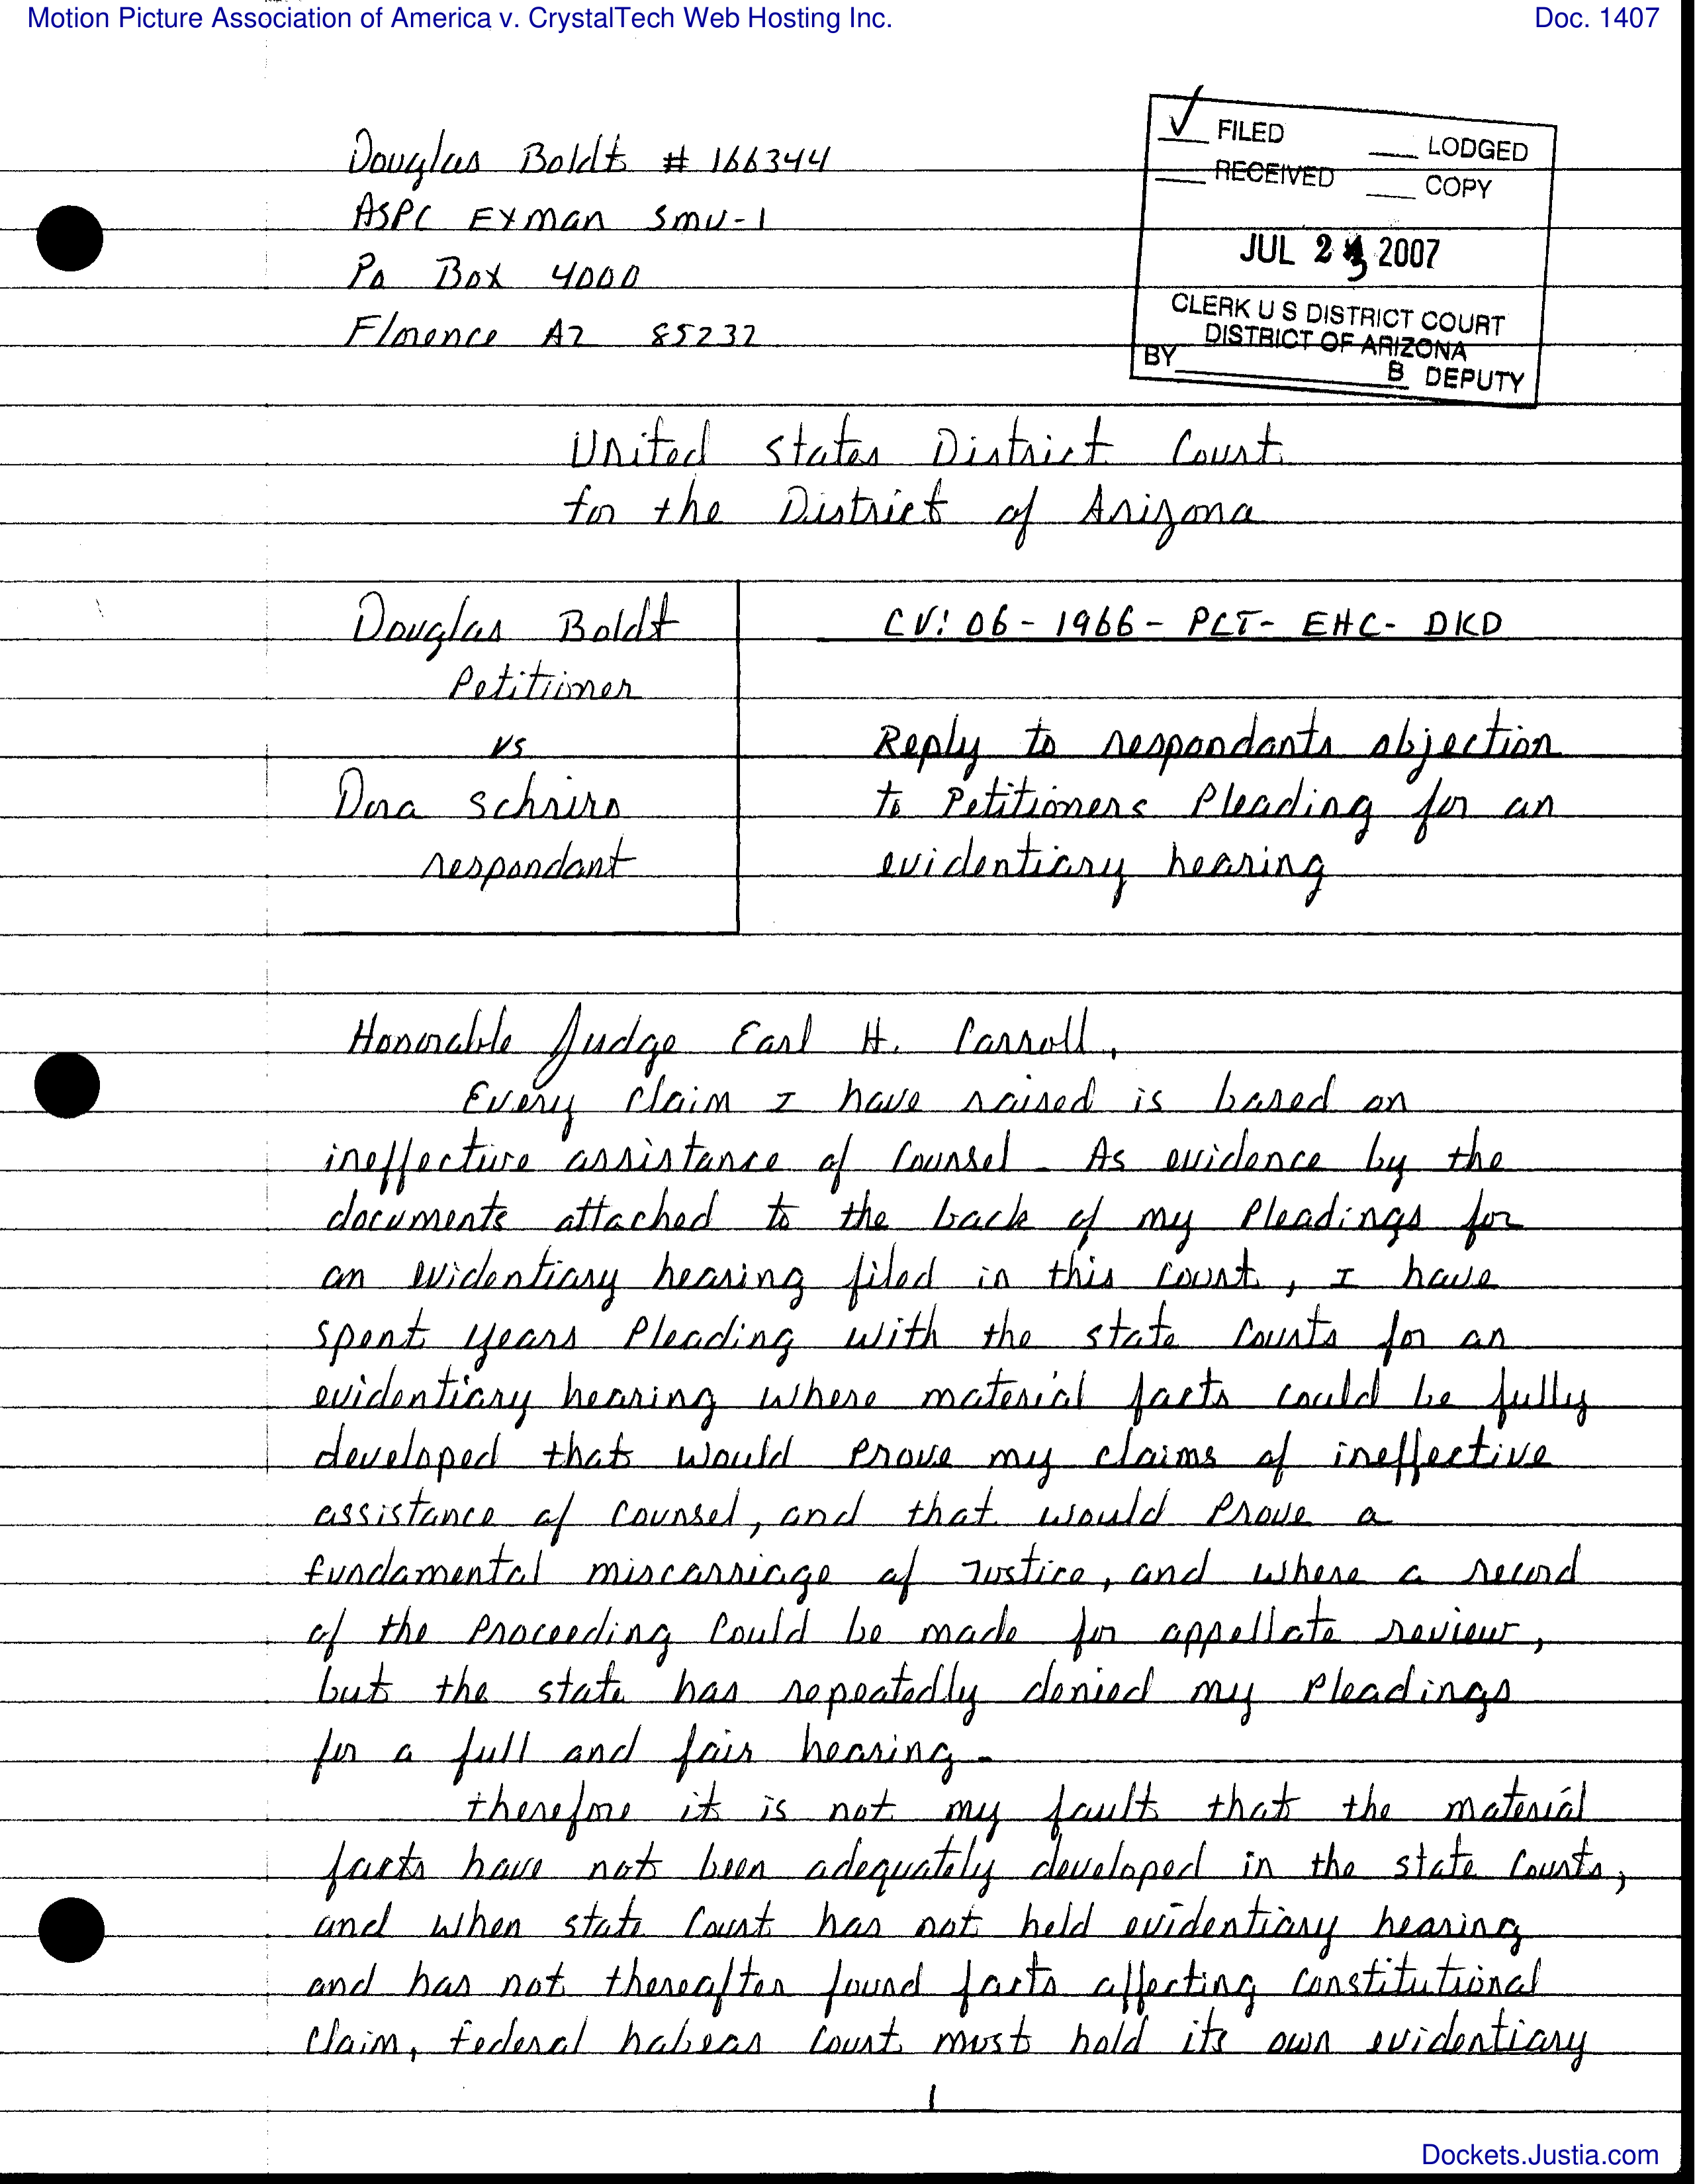 Motion Picture Association of America v. CrystalTech Web Hosting Inc. Doc. 1407
Douglas Boldt # 166344
ASPC Eyman SMU-1
Po Box 4000
Florence AZ 85232
✓ FILED LODGED
RECEIVED COPY
JUL 2 2007
CLERK U S DISTRICT COURT
DISTRICT OF ARIZONA
BY B DEPUTY
United States District Court
for the District of Arizona
Douglas Boldt
Petitioner
vs
Dora Schriro
respondant
CV: 06-1966-PCT-EHC-DKD
Reply to respondants objection
to Petitioners Pleading for an
evidentiary hearing
Honorable Judge Earl H. Carroll,
Every claim I have raised is based on
ineffecture assistance of Counsel. As evidence by the
documents attached to the back of my Pleadings for
an evidentiary hearing filed in this court, I have
spent years Pleading with the state Courts for an
evidentiary hearing where material facts could be fully
developed that would Prove my claims of ineffective
assistance of Counsel, and that would Prove a
fundamental miscarriage of Justice, and where a record
of the Proceeding Could be made for appellate review,
but the state has repeatedly denied my Pleadings
for a full and fair hearing.
therefore it is not my fault that the material
facts have not been adequately developed in the state Courts,
and when state Court has not held evidentiary hearing
and has not thereafter found facts affecting Constitutional
Claim, federal habeas Court must hold its own evidentiary
1
Dockets.Justia.com